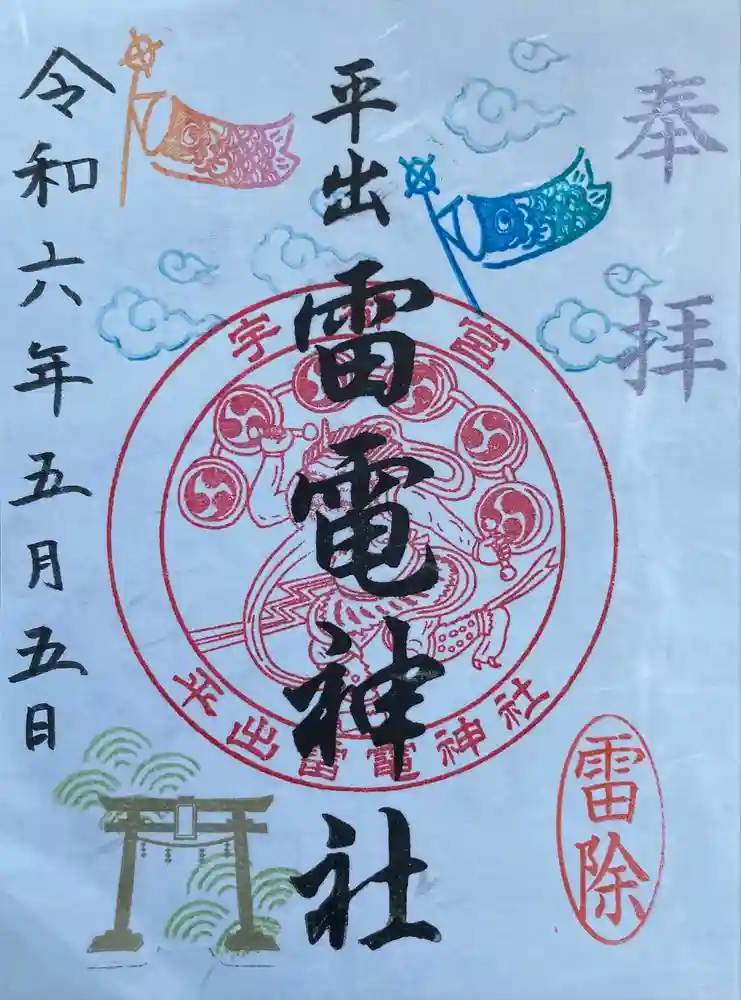 奉拝
平出雷電神社
宇都宮
平出雷電神社
雷除
令和六年五月五日